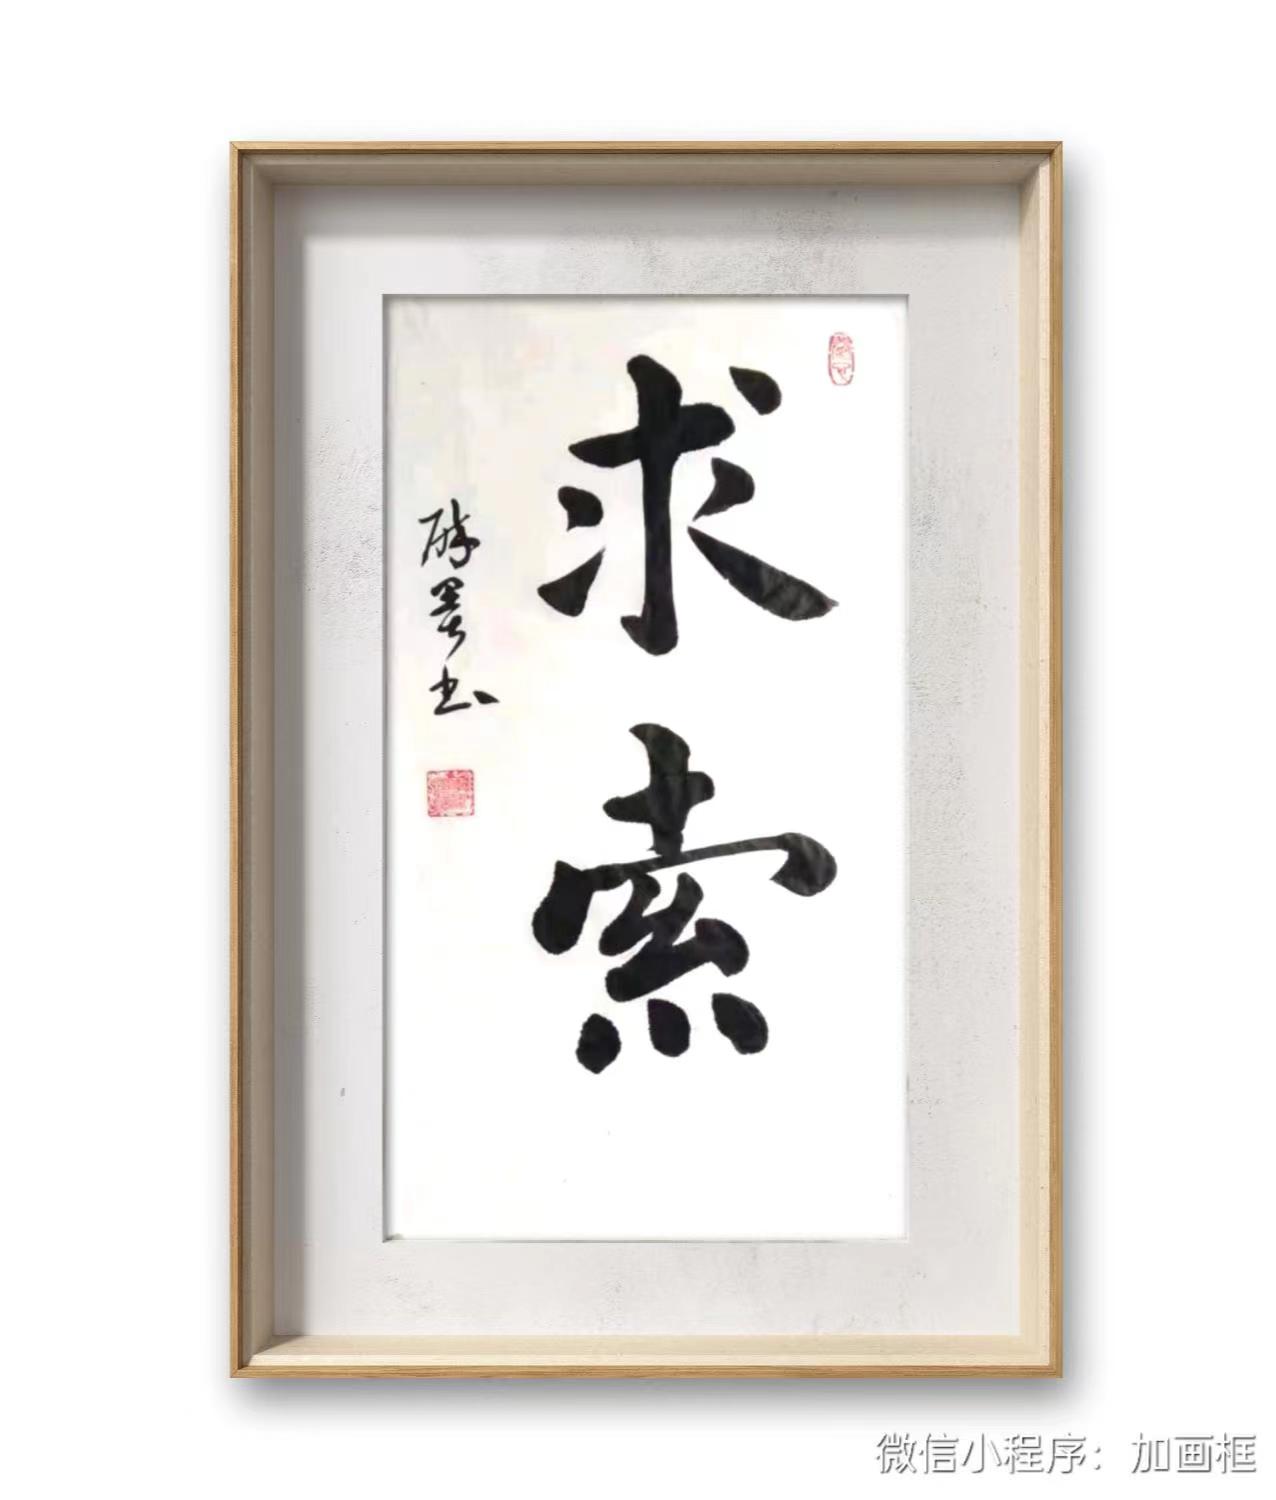 求索
醉墨书
微信小程序：加画框